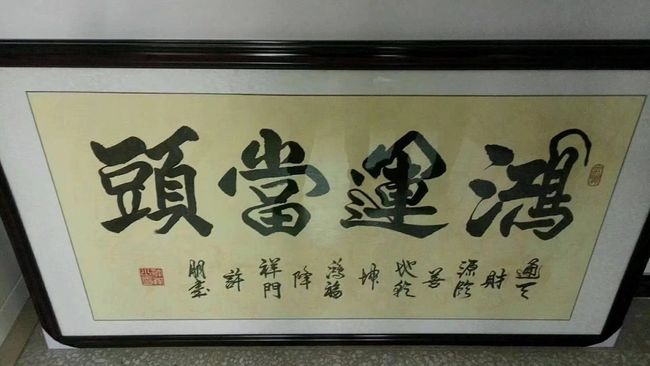 鴻運當頭
通天財源臨善地乾坤鴻福降祥門許朋書